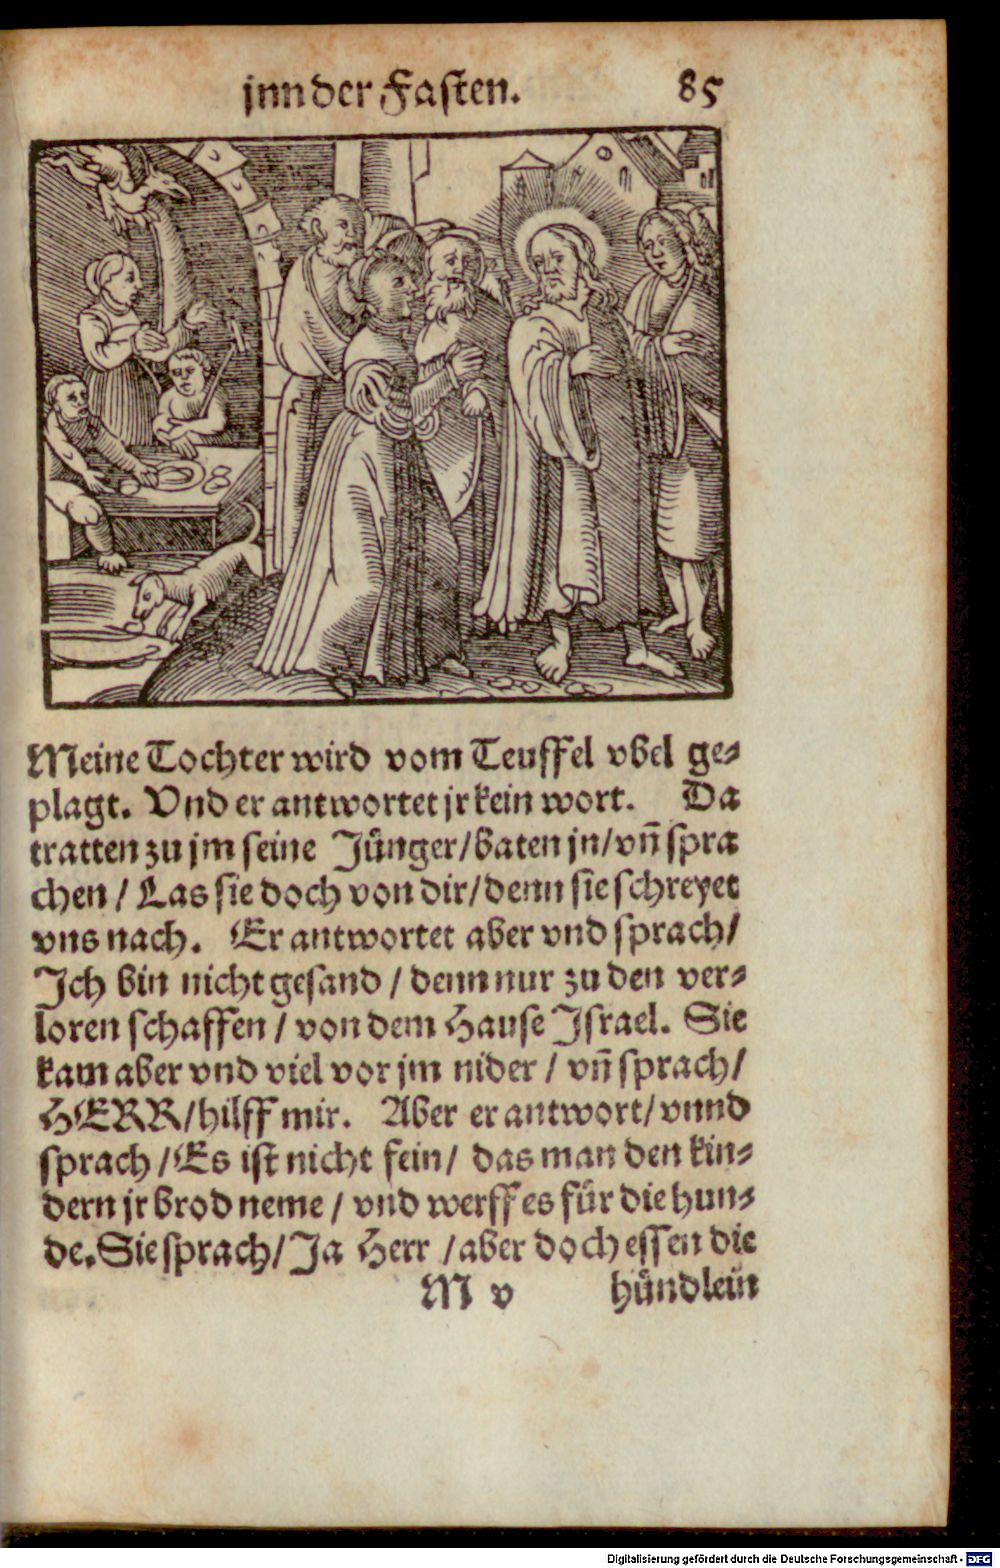 jnn der Fasten. 85
Meine Tochter wird vom Teuffel vbel ge⸗
plagt. Vnd er antwortet jr kein wort. Da
tratten zu jm seine Jünger/baten jn/vñ spra
chen / Las sie doch von dir/denn sie schreyet
vns nach. Er antwortet aber vnd sprach/
Ich bin nicht gesand / denn nur zu den ver⸗
loren schaffen / von dem Hause Israel. Sie
kam aber vnd viel vor jm nider / vñ sprach/
HERR/hilff mir. Aber er antwort/vnnd
sprach /Es ist nicht fein/ das man den kin⸗
dern jr brod neme / vnd werff es für die hun⸗
de. Sie sprach/ Ja Herr /aber doch essen die
M v hündlein
Digitalisierung gefördert durch die Deutsche Forschungsgemeinschaft - DFG